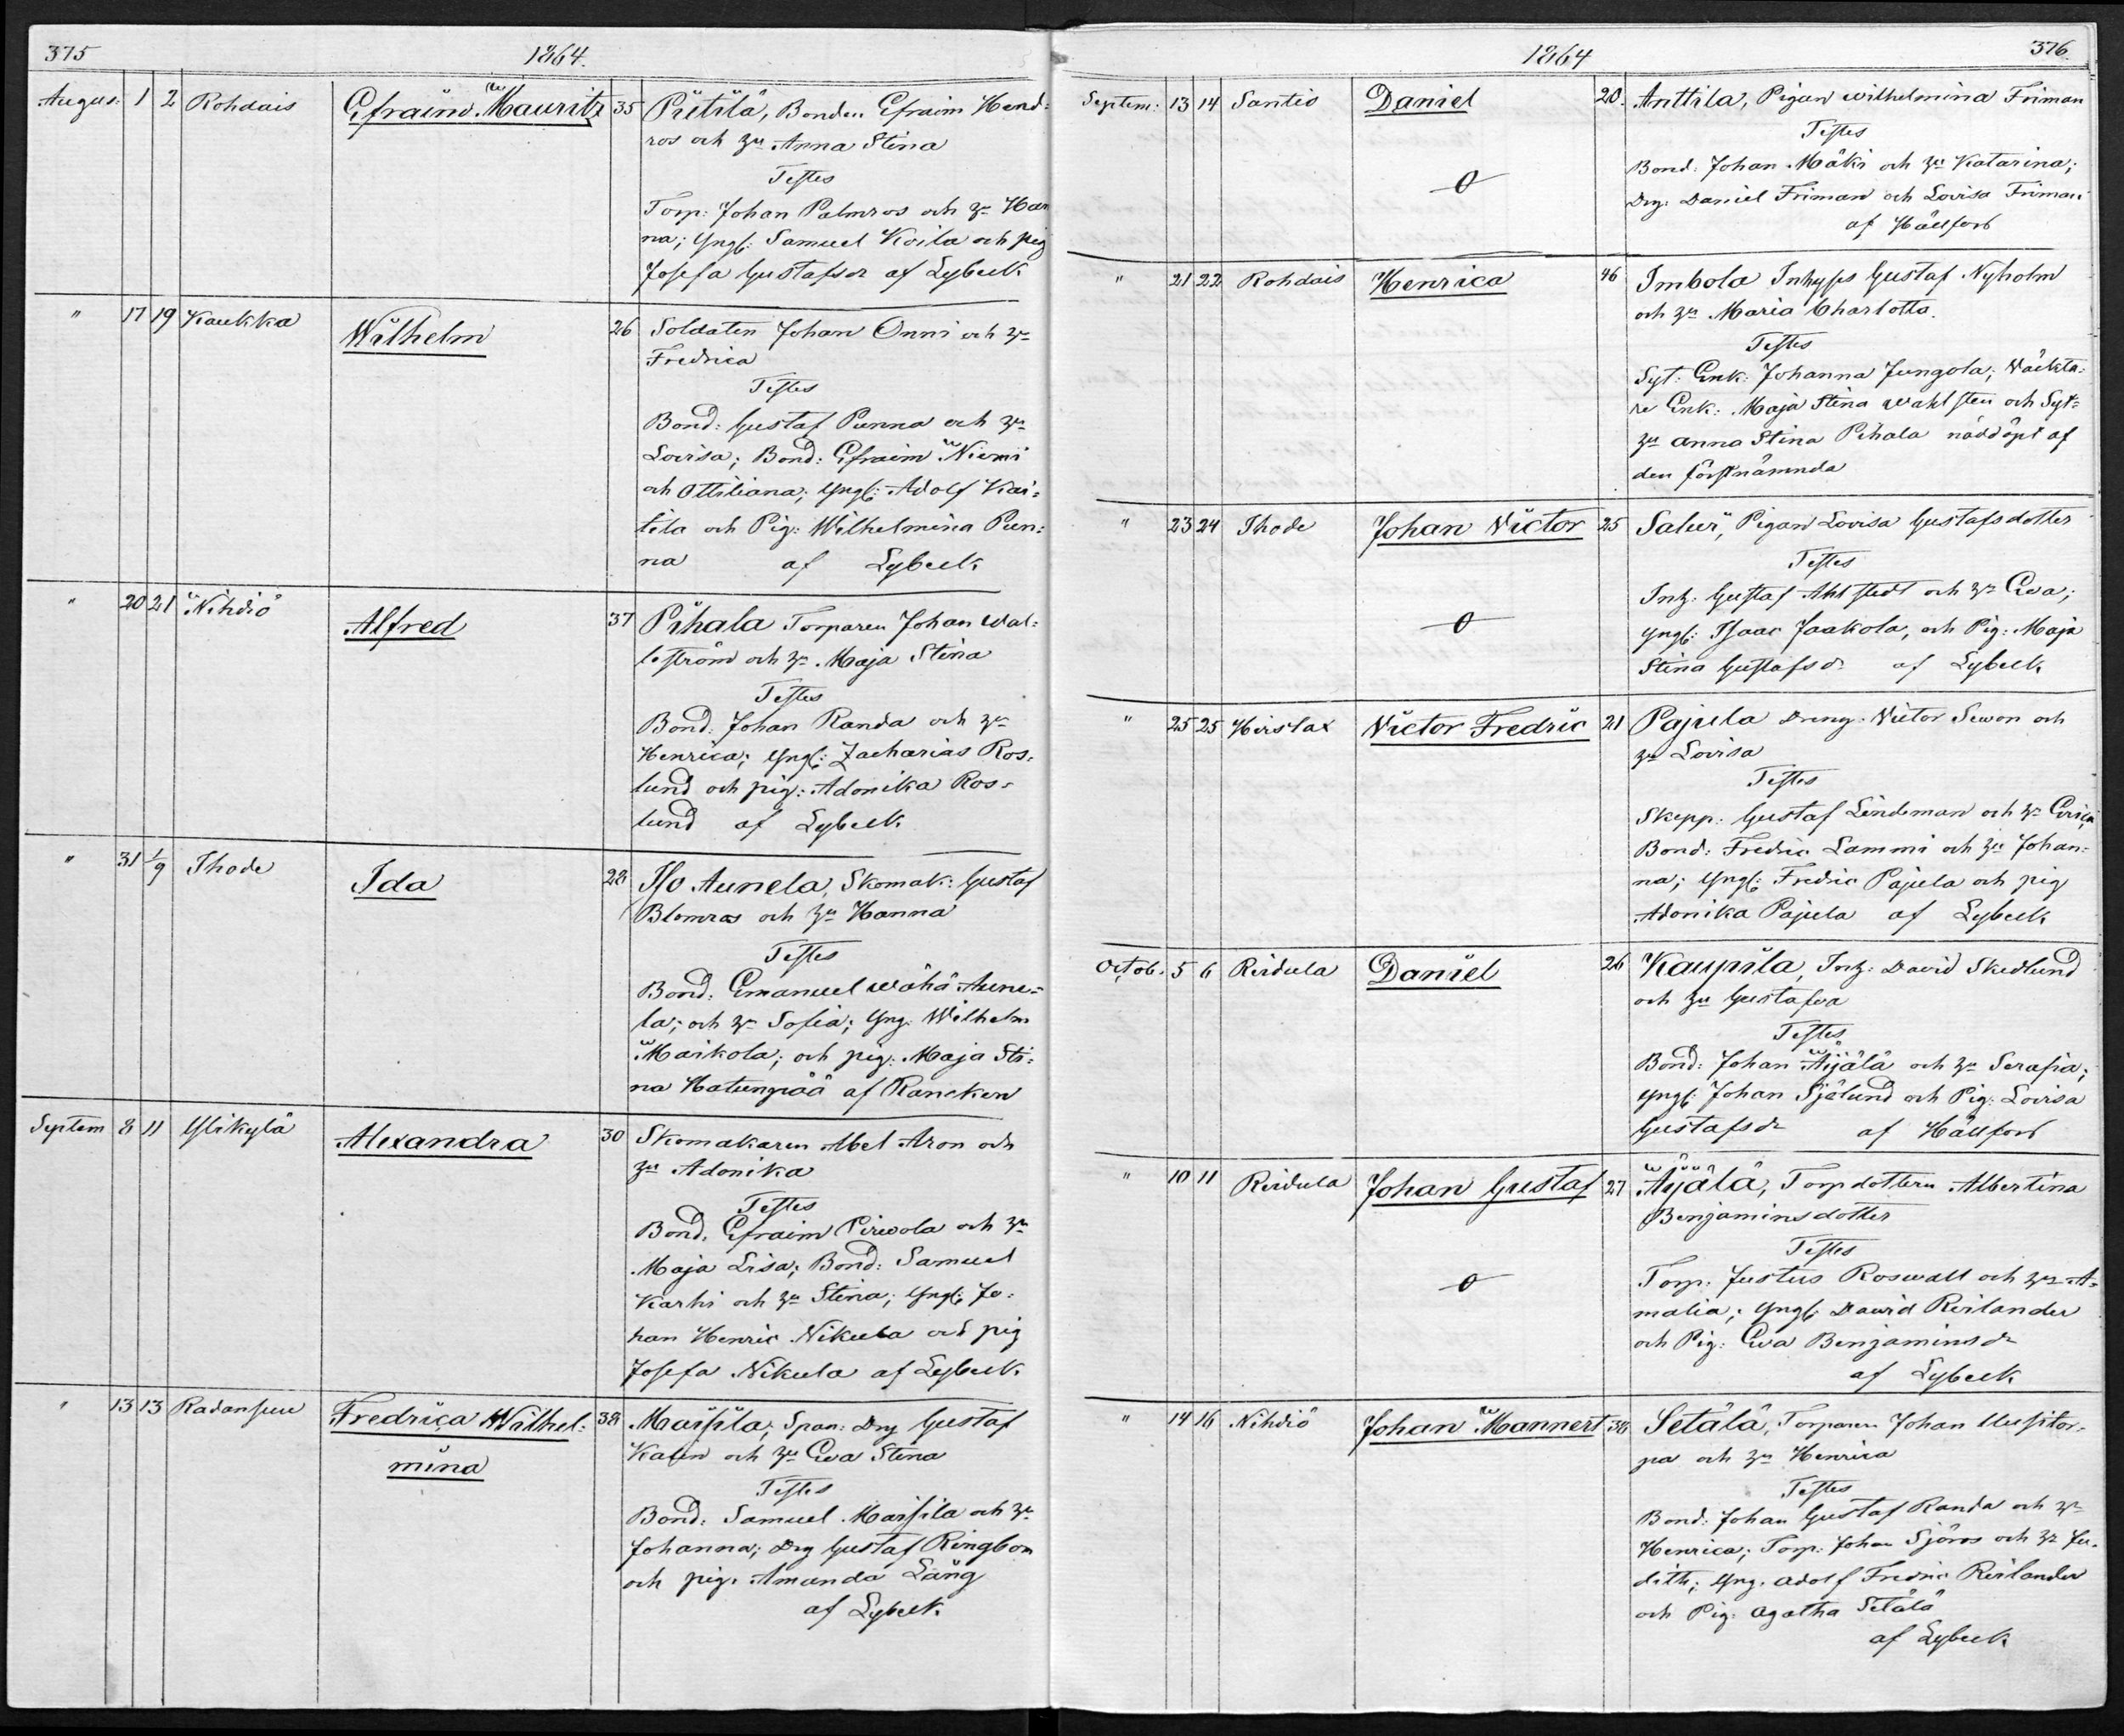 375
1864.
Augus: 1 2 Rohdais Efraim Mauritz 35 Pietilä, Bonden Efraim Hend=
ros och hu Anna Stina
Testes
Torp: Johan Palmros och hu Han
na; Yngl: Samuel Koila och pig
Josefa Gustafsdr af Lybeck
" 17 19 Kaukka Wilhelm 26 Soldaten Johan Onni och hu
Fredrica
Testes
Bond: Gustaf Punna och hu
Lovisa; Bond: Efraim Niemi
och Ottiliana; Yngl: Adolf Kai=
tila och Pig: Wilhelmina Pun=
na af Lybeck
" 20 21 Nihdiö Alfred 37 Pihala Torparen Johan Wal=
leström och hu Maja Stina
Testes
Bond: Johan Randa och hu
Henrica; Yngl: Zacharias Ros=
lund och pig: Adonika Ros=
lund af Lybeck
" 31 1/9 Ihode Ida 28 Iso Aunela, Skomak: Gustaf
Blomros och hu Hanna
Testes
Bond: Emanuel Wähä Aune=
la; och hu Sofia; Yng: Wilhelm
Maikola; och pig: Maja Sti=
na Hatunpää af Rancken
Septem 8 11 Ylikylä Alexandra 30 Skomakaren Abel Aron och
hu Adonika
Testes
Bond: Efraim Pirwola och hu
Maja Lisa; Bond: Samuel
Karhi och hu Stina; Yngl: Jo=
han Henric Nikula och pig
Josefa Nikula af Lybeck
" 13 13 Radansuu Fredrica Wilhel= 38 Maisila; Span: Drg Gustaf
mina
Kalin och hu Eva Stina
Testes
Bond: Samuel Maisila och hu
Johanna; Drg Gustaf Ringbom
och pig: Amanda Läng
af Lybeck
1864
376
Septem: 13 14 Santio Daniel 20. Anttila, Pigan Wilhelmina Friman
Testes
o
Bond: Johan Mäki och hu Katarina;
Drg: Daniel Friman och Lovisa Friman
af Hällfors
" 21 22 Rohdais Henrica 46 Imbola Inhyses Gustaf Nyholm
och hu Maria Charlotta.
Testes
Syt: Enk: Johanna Jungola; Wäckta=
re Enk: Maja Stina Wahlsten och Syt=
hu Anna Stina Pihala nöddöpt af
den förstnämnda
" 23 24 Ihode Johan Victor 25 Salui, Pigan Lovisa Gustafsdotter
Testes
o
Inh: Gustaf Ahlstedt och hu Eva;
Yngl: Isaac Jaakola, och Pig: Maja
Stina Gustafsdr af Lybeck
" 25 25 Heislax Victor Fredric 21 Pajula Dreng: Victor Sewon och
hu Lovisa
Testes
Skepp: Gustaf Lindeman och hu Erica
Bond: Fredric Lammi och hu Johan=
na; Yngl: Fredric Pajula och pig
Adonika Pajula af Lybeck
Octob. 5 6 Reidula Daniel 26 Kaupila, Inh: David Skedlund
och hu Gustafva
Testes
Bond: Johan Äijälä och hu Serafia;
Yngl: Johan Sjölund och Pig: Lovisa
Gustafsdr af Hällfors
" 10 11 Reidula Johan Gustaf 27 Äijälä, Torpdottern Albertina
Benjaminsdotter
Testes
o
Torp: Justus Roswall och hu A=
malia; Yngl: David Reilander
och Pig: Eva Benjaminsdr
af Lybeck
" 14 16 Nihdiö Johan Mannert 38 Setälä, Torparen Johan Uusitor=
pa och hu Henrica
Testes
Bond: Johan Gustaf Randa och hu
Henrica; Torp: Johan Sjöros och hu Ju=
dith; Yng: Adolf Fredric Reilander
och Pig: Agatha Setälä
af Lybeck